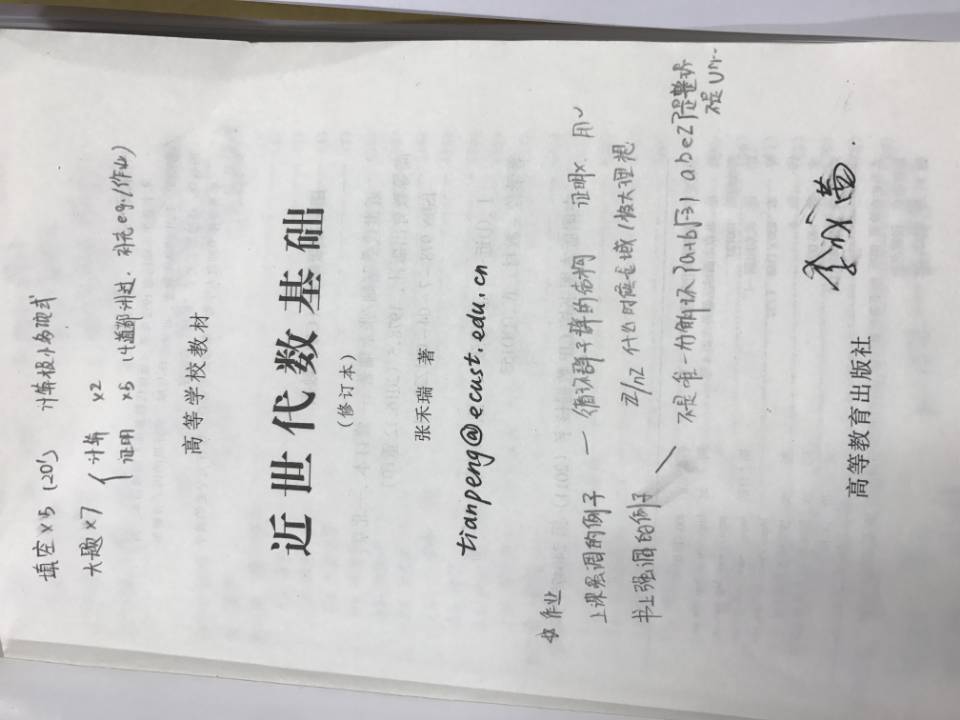 填空×5 (20') 计算极小多项式
大题×7 { 计算 ×2
证明 ×5 (4道都讲过. 补充e.g./作业)
高等学校教材
近世代数基础
(修订本)
张禾瑞 著
tianpeng@ecust.edu.cn
☆ 作业
上课强调的例子 — 循环群子群的结构 证明×. 用✓
Z/nZ 什么时候是域/极大理想
书上强调的例子
不是唯一分解环 {a+b√-3, a b∈Z}是整环
不是U
高等教育出版社